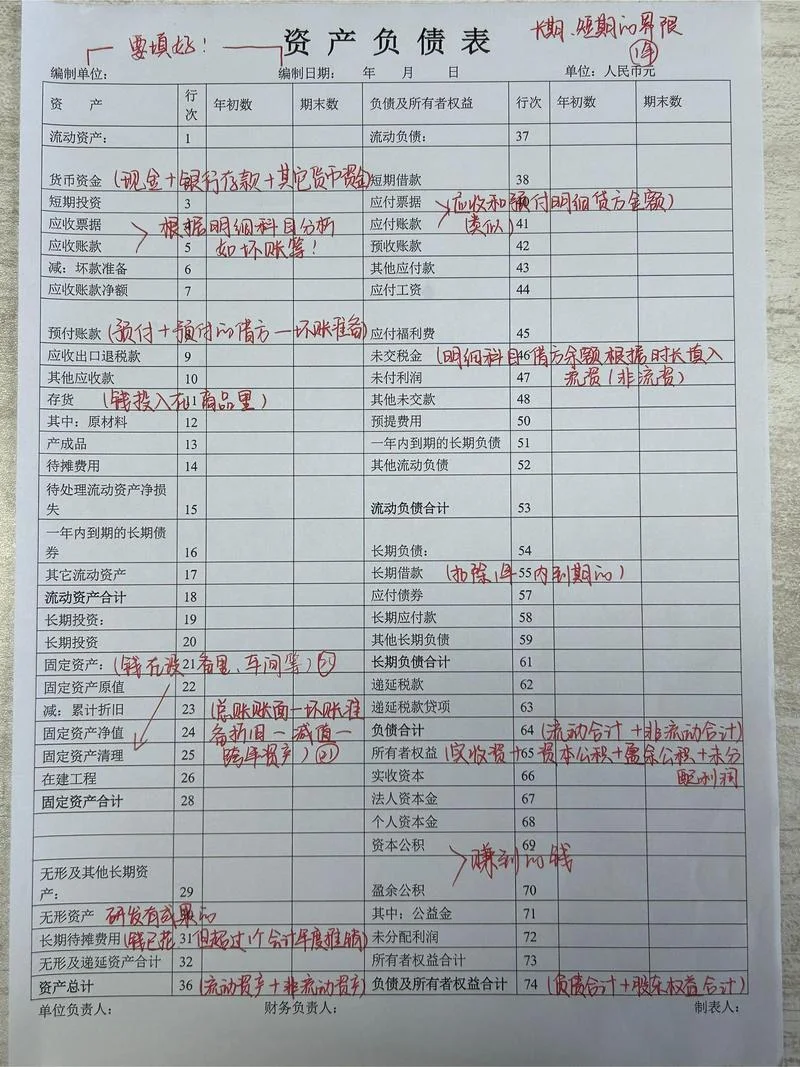 要填好！ 资产负债表 长期、短期的界限 1年
编制单位： 编制日期： 年 月 日 单位：人民币元
资 产 行次 年初数 期末数 负债及所有者权益 行次 年初数 期末数
流动资产： 1 流动负债： 37
货币资金 (现金+银行存款+其它货币资金) 短期借款 38
短期投资 3 应付票据 应收和预付明细贷方金额)
应收票据 根据明细科目分析 应付账款 (类似) 41
应收账款 5 如坏账等！ 预收账款 42
减：坏款准备 6 其他应付款 43
应收账款净额 7 应付工资 44
预付账款 (预付+预付的借方一坏账准备) 应付福利费 45
应收出口退税款 9 未交税金 (明细科目借方余额根据时长填入 46
其他应收款 10 未付利润 47 流资(非流资)
存货 (钱投入在商品里) 11 其他未交款 48
其中：原材料 12 预提费用 50
产成品 13 一年内到期的长期负债 51
待摊费用 14 其他流动负债 52
待处理流动资产净损失 15 流动负债合计 53
一年内到期的长期债券 16 长期负债： 54
其它流动资产 17 长期借款 (扣除1年内到期的) 55
流动资产合计 18 应付债券 57
长期投资： 19 长期应付款 58
长期投资 20 其他长期负债 59
固定资产： (钱在设备里、车间等) 21 长期负债合计 61
固定资产原值 22 递延税款 62
减：累计折旧 23 (总账账面一坏账准 递延税款贷项 63
固定资产净值 24 备折旧一减值一 负债合计 64 (流动合计+非流动合计)
固定资产清理 25 跨年资产) 所有者权益 (实收资+资本公积+盈余公积+未分 65
在建工程 26 实收资本 66 配利润
固定资产合计 28 法人资本金 67
个人资本金 68
资本公积 69
赚到的钱
无形及其他长期资产： 29 盈余公积 70
无形资产 研发有成果的 其中：公益金 71
长期待摊费用 (钱已花 但超过1个会计年度摊销) 31 未分配利润 72
无形及递延资产合计 32 所有者权益合计 73
资产总计 36 (流动资产+非流动资产) 负债及所有者权益合计 74 (负债合计+股东权益合计)
单位负责人： 财务负责人： 制表人：